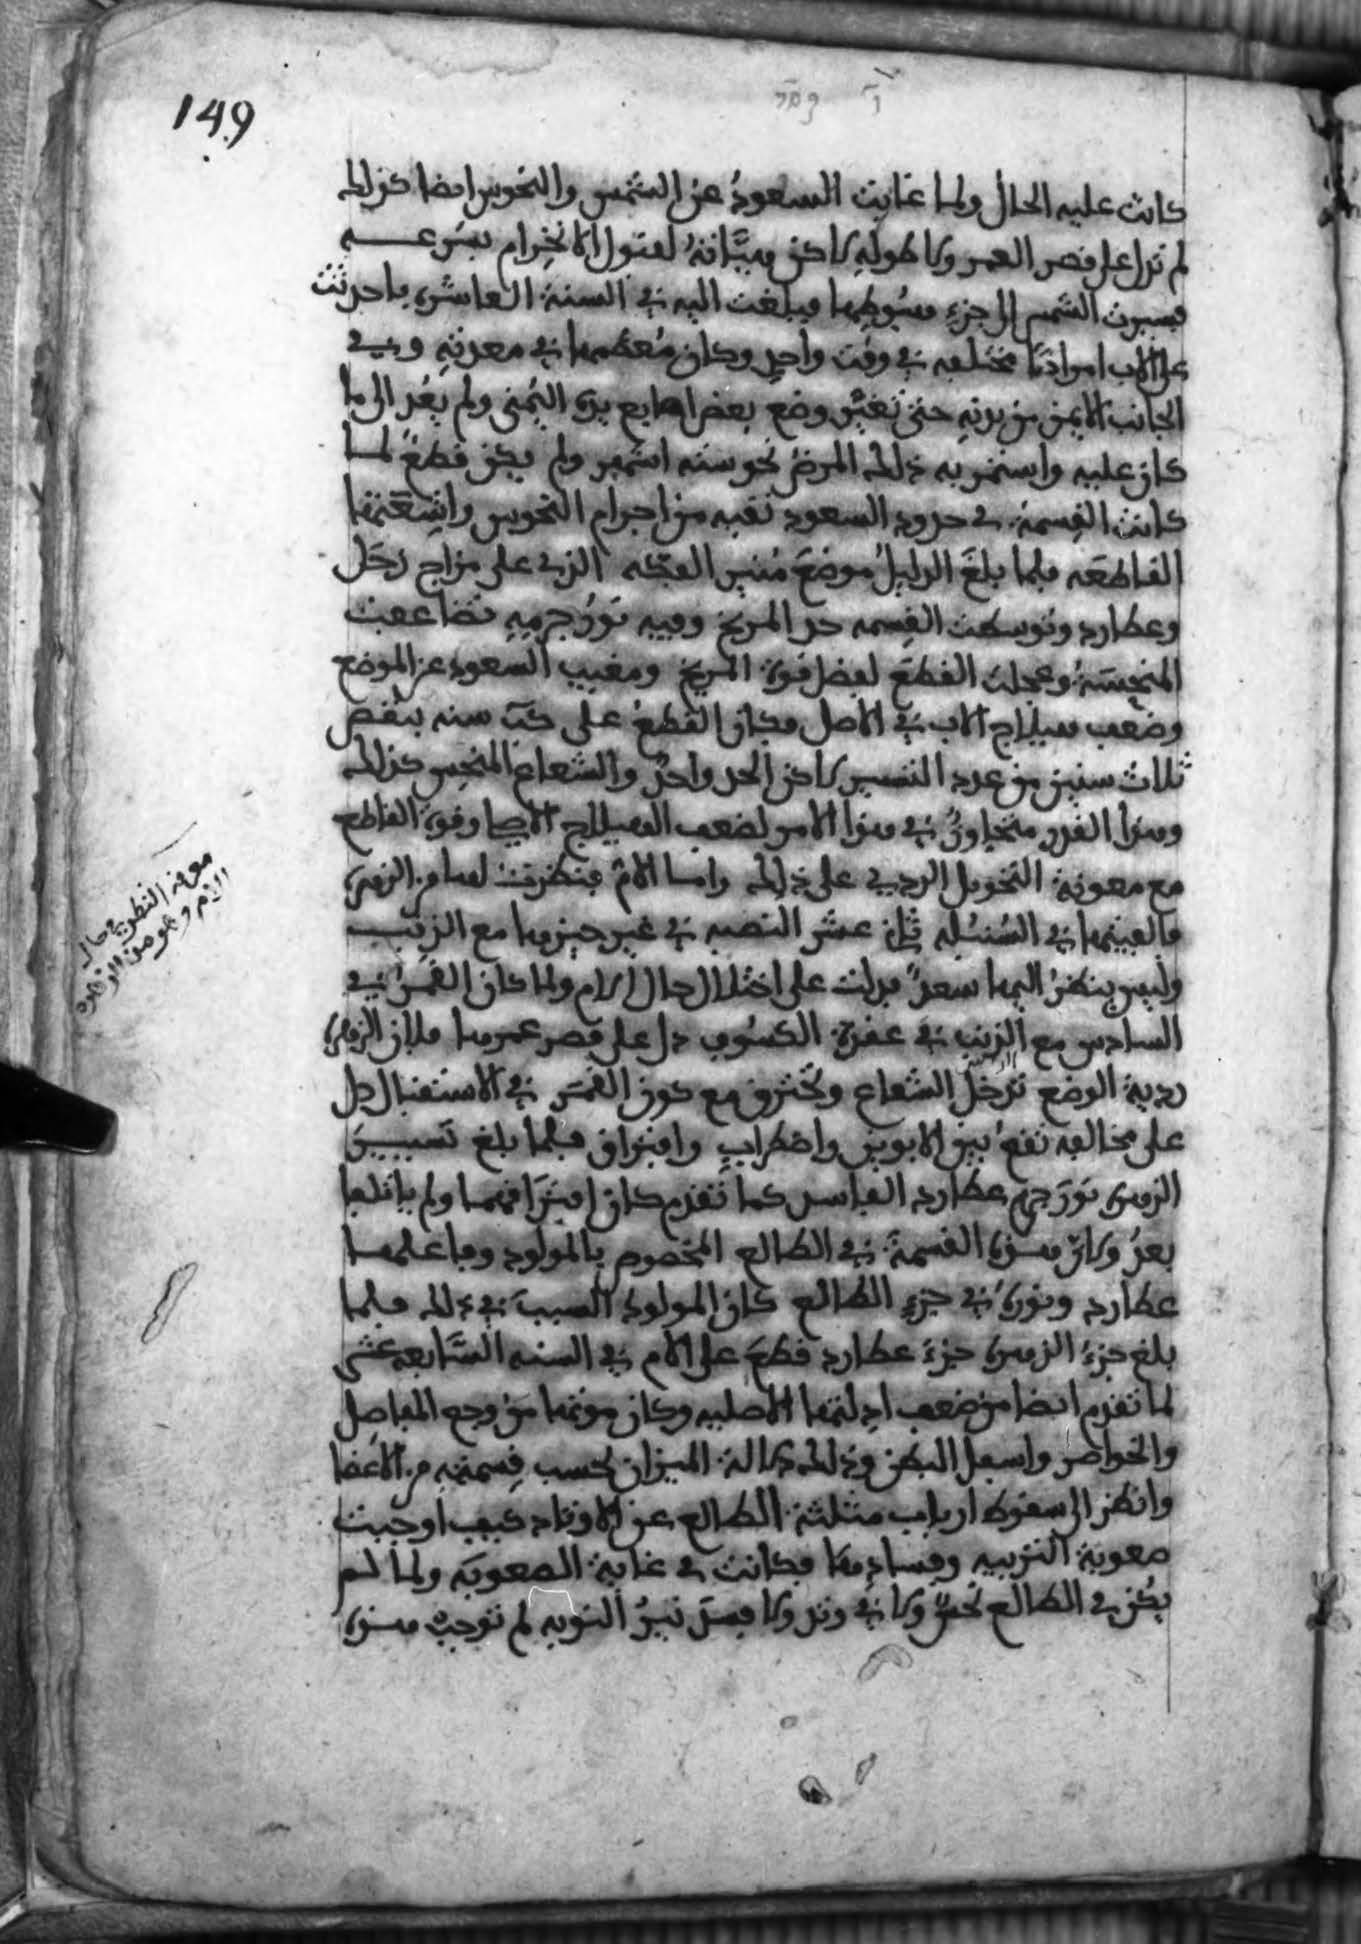 149
كانت عليه الحال ولما غابت السعود عن الشمس والنحوس ايضا كذلك
لم تدل على قصر العمر ولا طوله لاكن لقبول الانخرام بسرعــه
فسيرت الشمس الى جزء سقوطها فبلغت اليه في السنة العاشرة فاحدثت
على الاب امراضا مختلفه في وقت واحد وكان معظمها في معدته وفي
الجانب الايمن من بدنه حتى تغير وضع بعض اصابع يده اليمنى ولم يعد الى ما
كان عليه واستمر به ذلك المرض نحو سته اشهر ولم يكن قطع لما
كانت القسمة في حدود السعود نقيه من اجرام النحوس واشعتها
القاطعه فلما بلغ الدليل موضع منير الفكه الذي على مزاج زحل
وعطارد وتوسطت القسمه حد المريخ وفيه نور جرمه تضاعفت
المنحسة وعجلت القطع لفضل قوة المريخ ومغيب السعود عن الموضع
وضعف هيلاج الاب في الاصل فكان القطع على سنه بنقص
ثلاث سنين من عدد التسيير لاكن الحد واحد والشعاع المنحس كذلك
وهذا القدر متجاوز في هذا الامر لضعف الهيلاج الاصلي وقوة القاطع
مع معونة التحويل الردي على ذلك واما الام فنظرت لها من الزهرة
فالفيتها في السنبله ثاني عشر النصبه في غير حيزها مع الذنب
وليس ينظر اليها سعد فدلت على اختلال حال الام ولما كان القمر في
السادس مع الذنب في عقدة الكسوف دل على قصر عمرها فلان الزهرة
ردية الوضع تدخل الشعاع وتحترق مع كون القمر في الاستقبال دل
على مخالفه تقع بين الابوين واضطراب وافتراق فلما بلغ تسيير
الزهرة نور جرم عطارد الفاسد كما تقدم كان افتراقهما ولم ياتلفا
بعد ولان هذه القسمة في الطالع المخصوص بالمولود وفاعلها
عطارد ونوره في جزء الطالع كان المولود السبب في ذلك فلما
بلغ جزء الزهرة جزء عطارد قطع على الام في السنه السابعه عشر
لما تقدم ايضا من ضعف ادلتها الاصليه وكان موتها من وجع المفاصل
والخواصر واسفل البطن وذلك دلالة الميزان بحسب قسمته من الاعضا
وانظر الى سقوط ارباب مثلثة الطالع عن الاوتاد كيف اوجبت
صعوبة التربيه وفسادها فكانت في غاية الصعوبة ولما لم
يكن في الطالع نحس ولا في وتد ولا فسد نير النوبه لم توجب هذه
معرفة النظر في حال
الام وهو من الزهرة